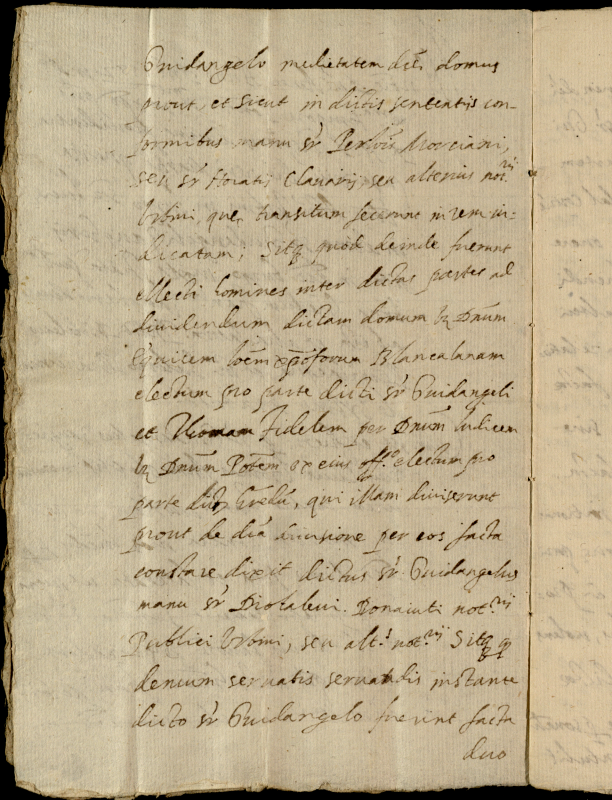 Guidangelo medietatem dcē domus
prout, et sicut in dictis sententijs con-
formibus manu sr̄ Morciani,
seu sr̄ Horatij Clauarij, seu alterius not.rij
Vrbini, que transitum fecerunt in rem iu-
dicatam; Sitq quod deinde fuerunt
ellecti homines inter dictas partes ad
diuidendum dictam domum Dnūm
Equitem Blancalanam
electum pro parte dicti sr̄ Guidangeli
et Fidelem per Dnūm Iudicem
Dnūm Potēm ex eius off.o electum pro
parte qui illam diuiserunt
prout de dīa diuisione per eos facta
constare dixit dictus sr̄ Guidangelus
manu sr̄ Diotaleui Bonaiuti not.rij
Publici Vrbini, seu alt.s not.rij Sitq q
demum seruatis seruandis instante
dicto sr̄ Guidangelo fuerint facta
duo